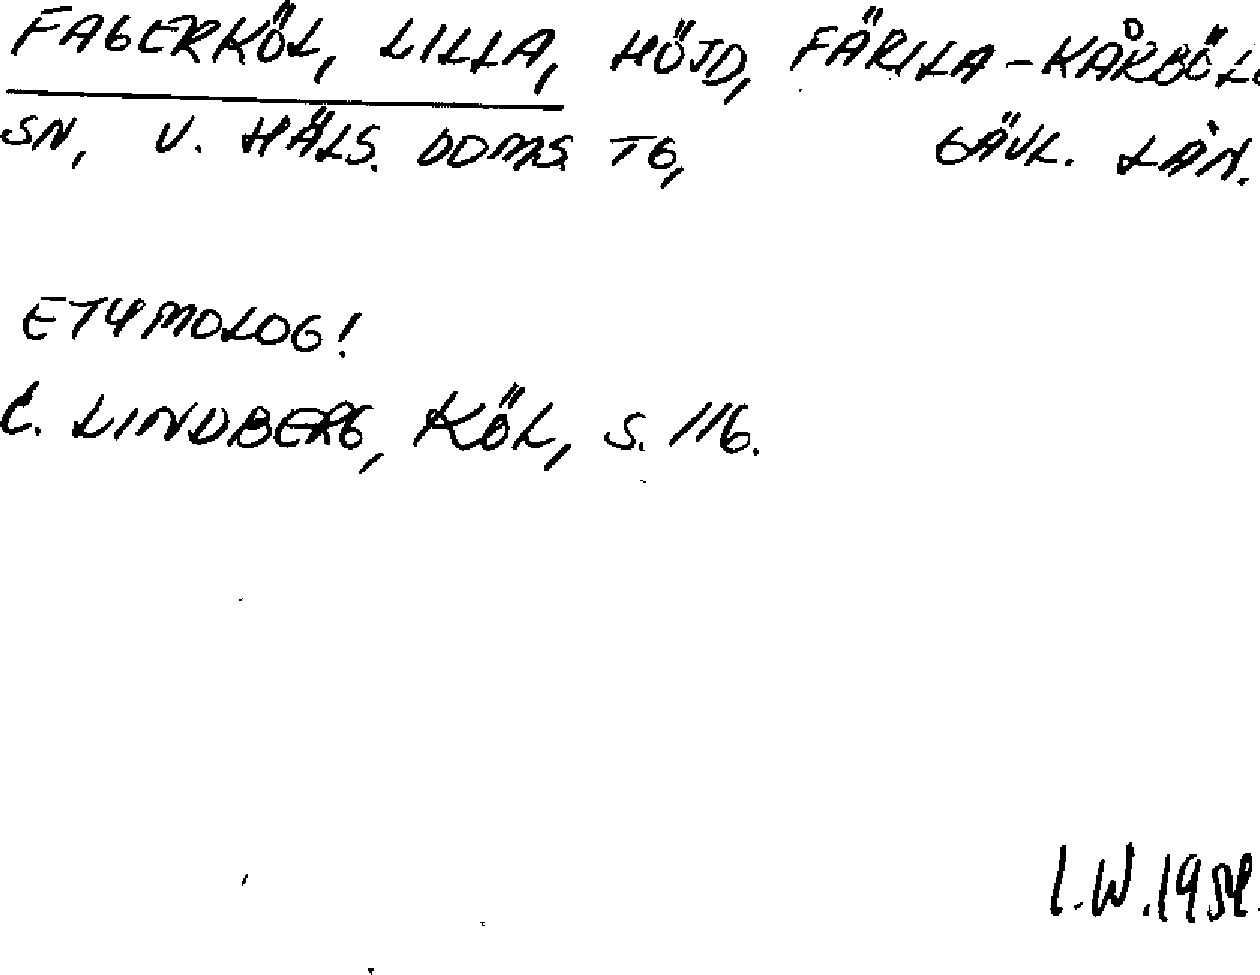 FAGERKÖL, LILLA, HÖJD, FÄRILA-KÅRBÖLE
SN, V. HÄLS. DOMS. TG, GÄVL. LÄN.
ETYMOLOG!
C. LINDBERG, KÖL, S. 116.
I.W. 1954.